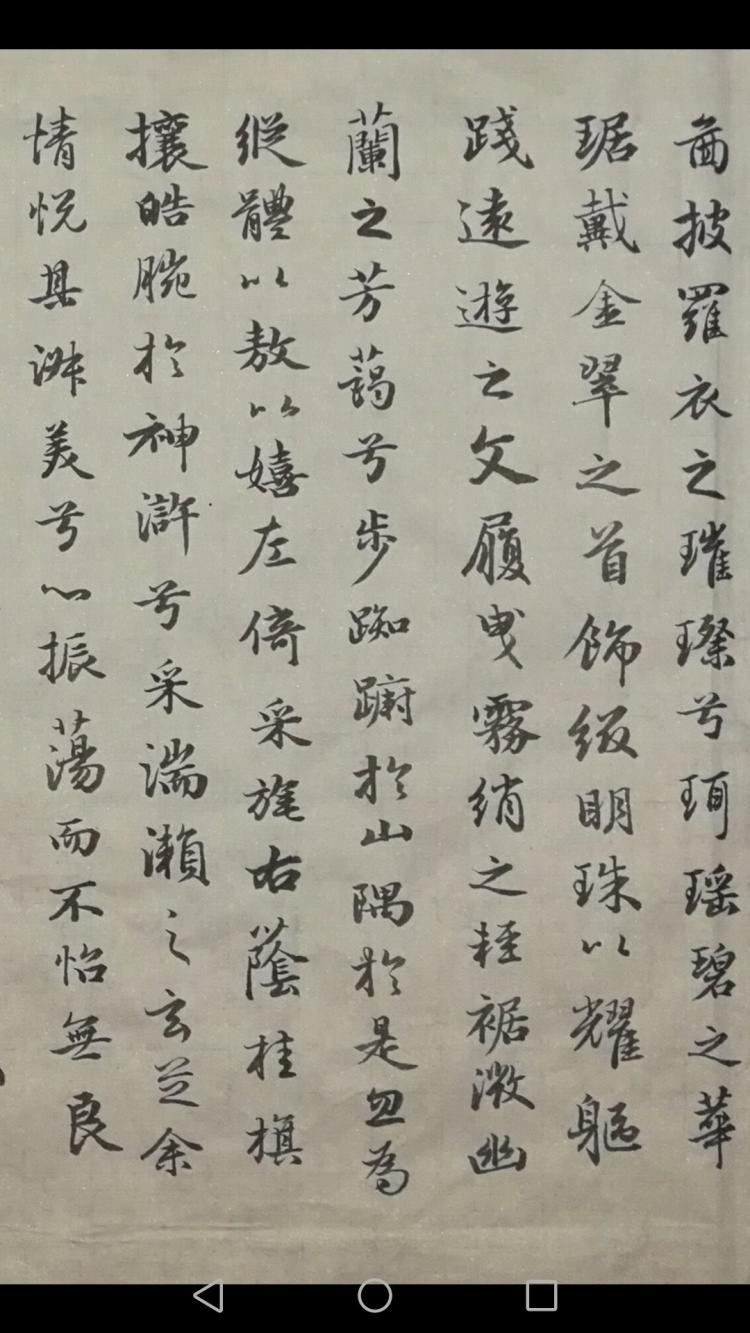 面披羅衣之璀璨兮珥瑶碧之華
琚戴金翠之首飾綴明珠以耀軀
踐遠遊之文履曳霧綃之輕裾微幽
蘭之芳藹兮步踟躕於山隅於是忽焉
縱體以敖以嬉左倚采旄右蔭桂旗
攘皓腕於神滸兮采湍瀨之玄芝余
情悅其淑美兮心振蕩而不怡無良